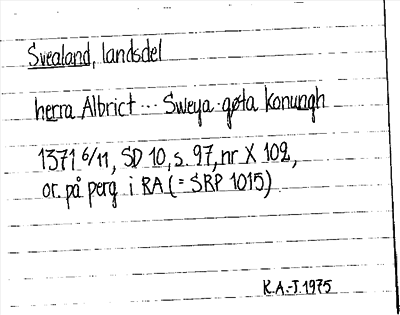 Svealand, landsdel
herra Albrict ... Sweya. gøta konungh
1371 6/11, SD 10, s. 97, nr X 102,
or. på perg i RA (= SRP 1015)
K.A.-J. 1975